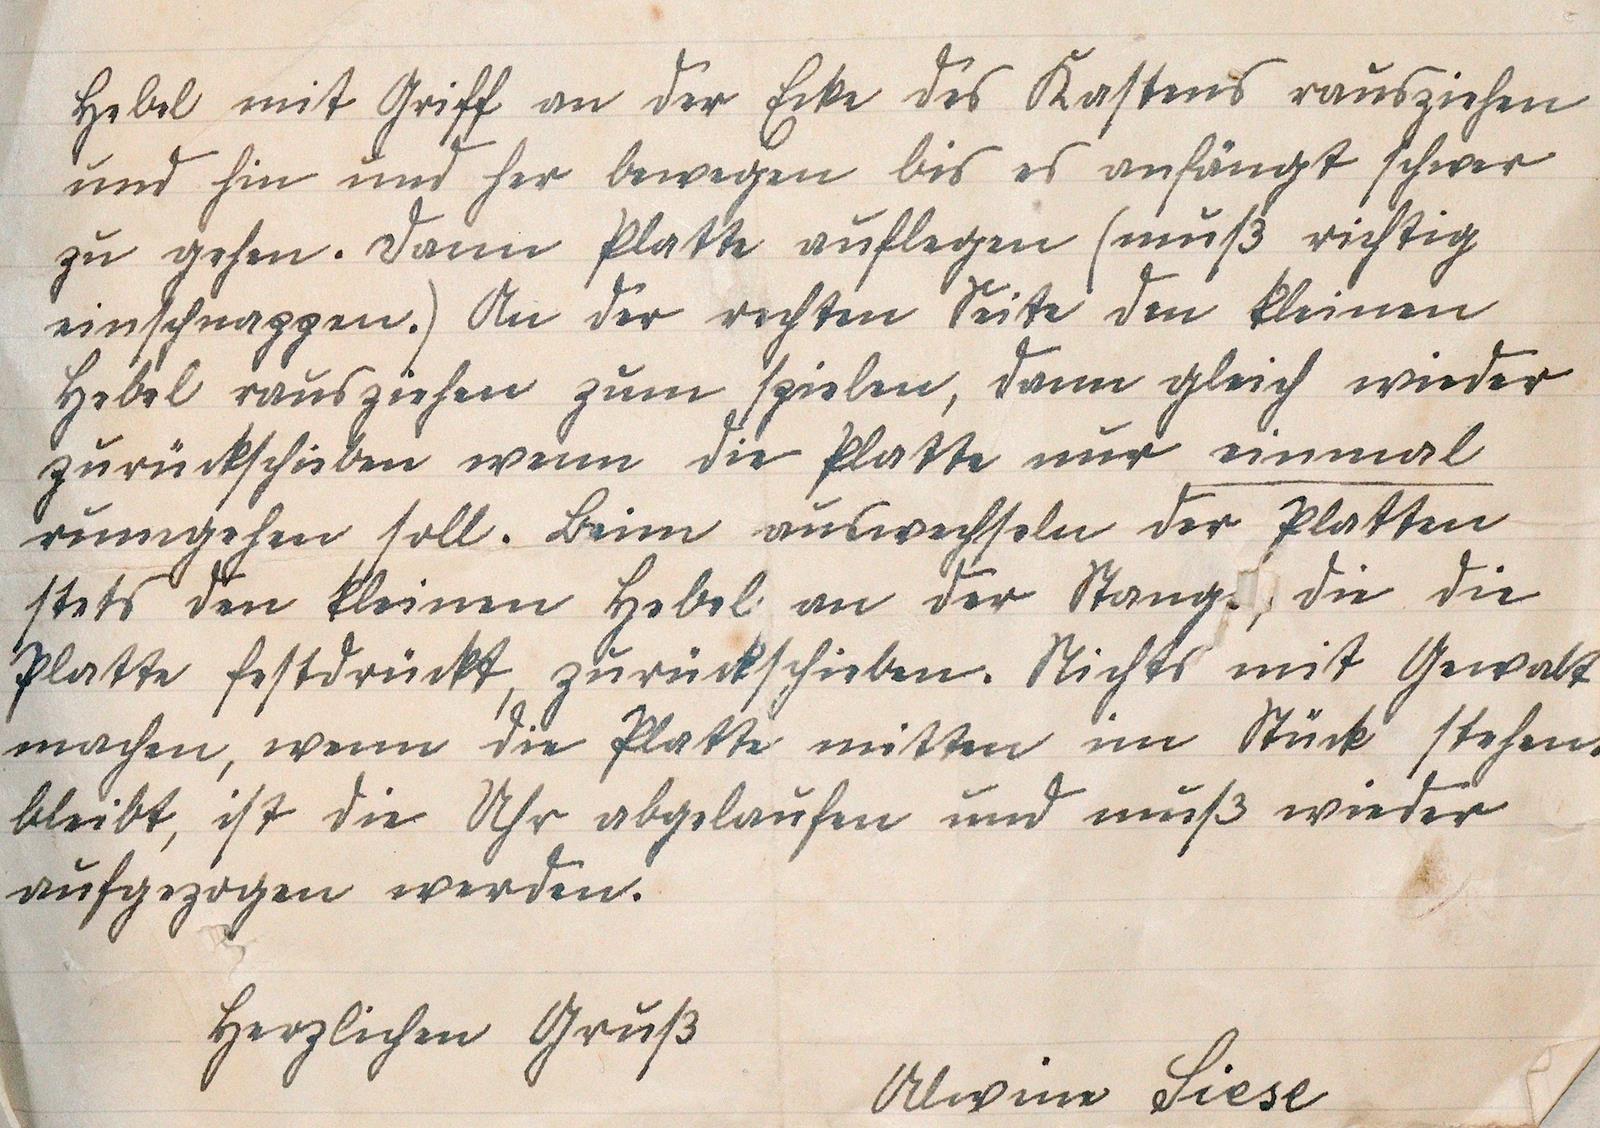 Hebel mit Griff an der Ecke des Kastens rausziehen
und hin und her bewegen bis es anfängt schwer
zu gehen. Dann Platte auflegen (muß richtig
einschnappen.) An der rechten Seite den kleinen
Hebel rausziehen zum spielen, dann gleich wieder
zurückschieben wenn die Platte nur einmal
rumgehen soll. Beim auswechseln der Platten
stets den kleinen Hebel an der Stang , die die
Platte festdrückt, zurückschieben. Nichts mit Gewalt
machen, wenn die Platte mitten im Stück stehen
bleibt, ist die Uhr abgelaufen und muß wieder
aufgezogen werden.
Herzlichen Gruß
Alwine Siese